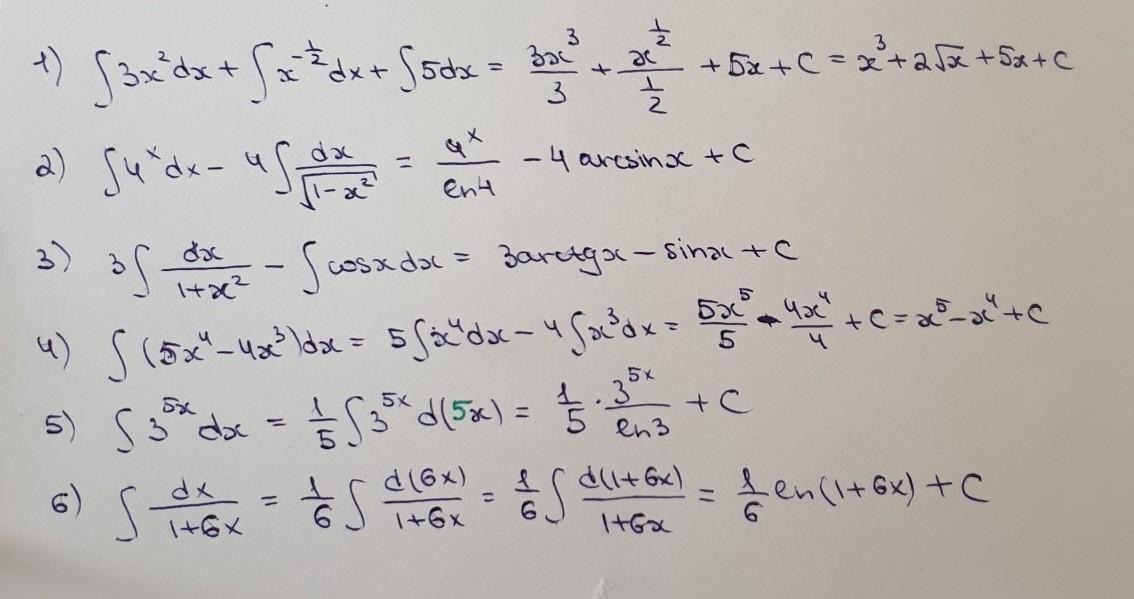 1) ∫3x²dx + ∫x^(-1/2)dx + ∫5dx = 3x³/3 + x^(1/2)/(1/2) + 5x + C = x³ + 2√x + 5x + C
2) ∫4^x dx - 4∫dx/√(1-x²) = 4^x/ln4 - 4 arcsinx + C
3) 3∫dx/(1+x²) - ∫cosxdx = 3arctgx - sinx + C
4) ∫(5x⁴-4x³)dx = 5∫x⁴dx - 4∫x³dx = 5x⁵/5 - 4x⁴/4 + C = x⁵ - x⁴ + C
5) ∫3^(5x) dx = 1/5 ∫3^(5x) d(5x) = 1/5 · 3^(5x)/ln3 + C
6) ∫dx/(1+6x) = 1/6 ∫d(6x)/(1+6x) = 1/6 ∫d(1+6x)/(1+6x) = 1/6 ln(1+6x) + C